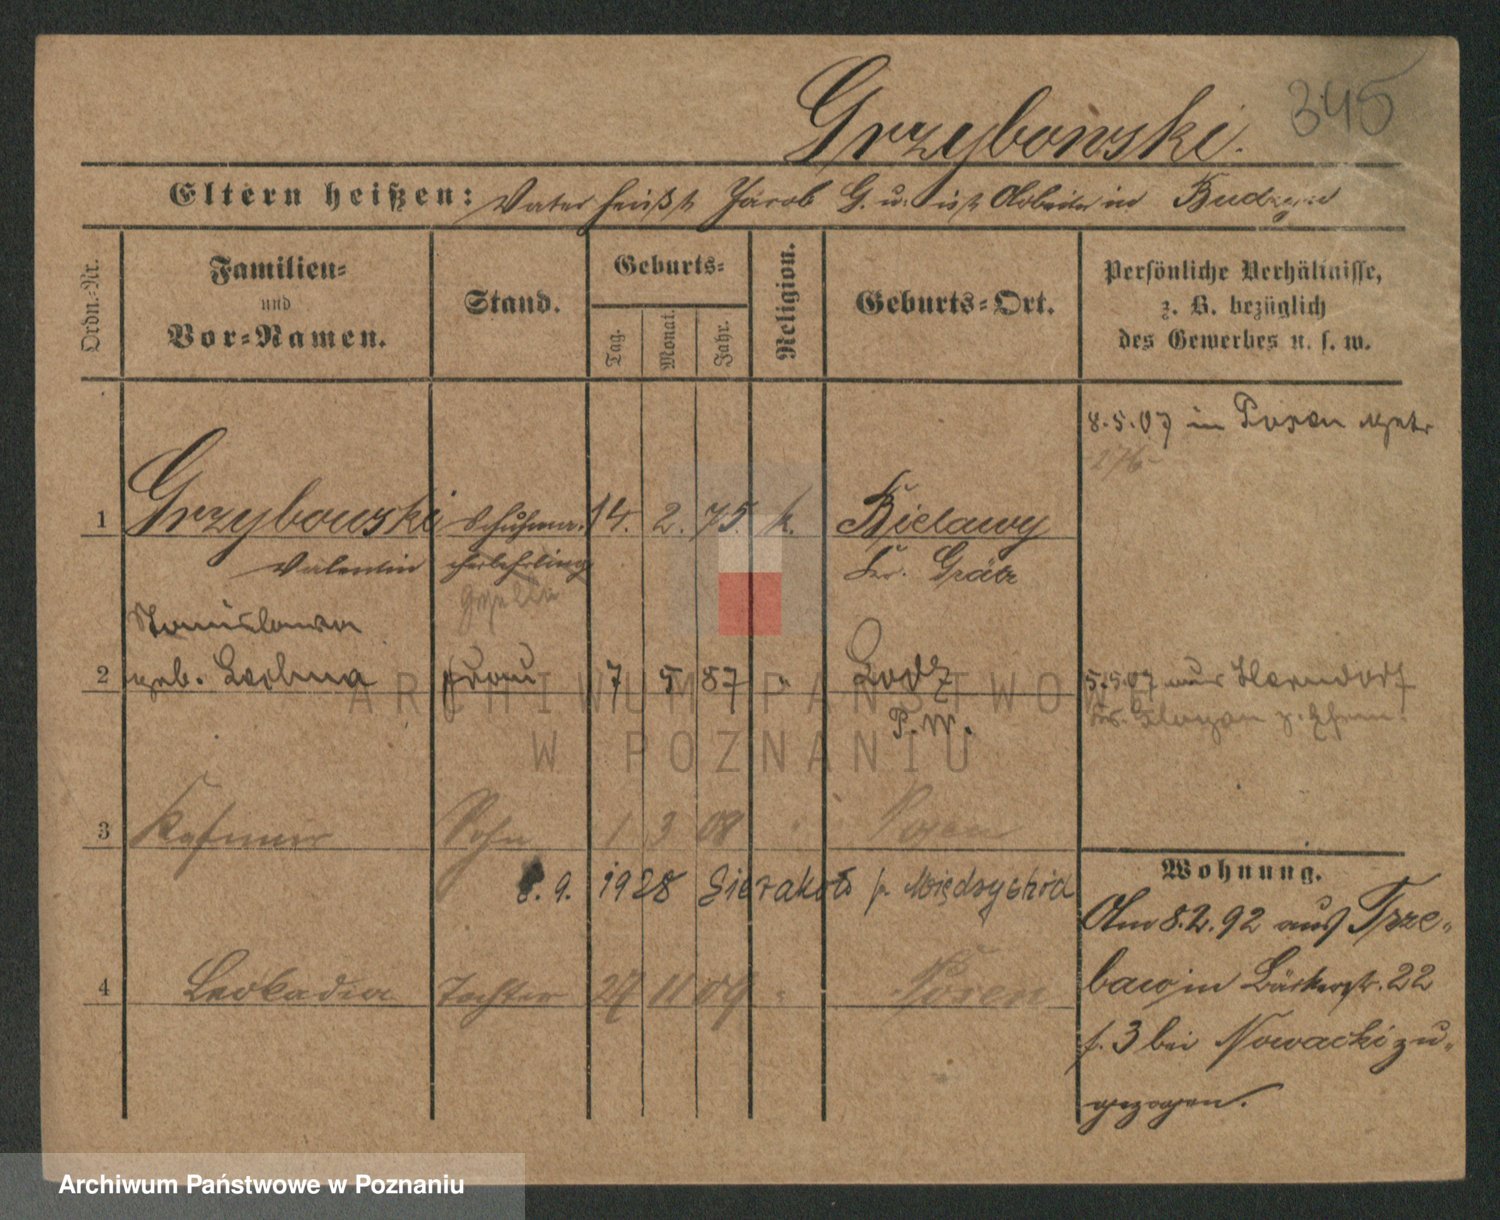 Grzybowski. 345
Eltern heißen: Vater heißt Jacob G. u. ist Arbeiter in Budzyn
Ordn.-Nr.
Familien-
und
Vor-Namen.
Stand.
Geburts-
Tag.
Monat.
Jahr.
Religion.
Geburts-Ort.
Persönliche Verhältnisse,
z. B. bezüglich
des Gewerbes u. s. w.
8.5.07 in Posen
1 Grzybowski Schuhma- 14. 2. 75. k. Bielawy
Valentin cherlehrling Kr. Grätz
Geselle
Stanislawa
2 geb. Frau 7 5 87 " Lodz
P. W.
5.5.07 aus Herrndorf
Kr. Glogau z. Ehem.
3 Kasimir Sohn 1 3 08 " Posen
8. 9. 1928 Sieraków p. Międzychód
4 Leokadia Tochter 27 11 09 " Posen
Wohnung.
Am 8.2.92 aus Trze-
baw in Bäckerstr. 22
p. 3 bei Nowacki zu-
gezogen.
ARCHIWUM PAŃSTWOWE
W POZNANIU
Archiwum Państwowe w Poznaniu